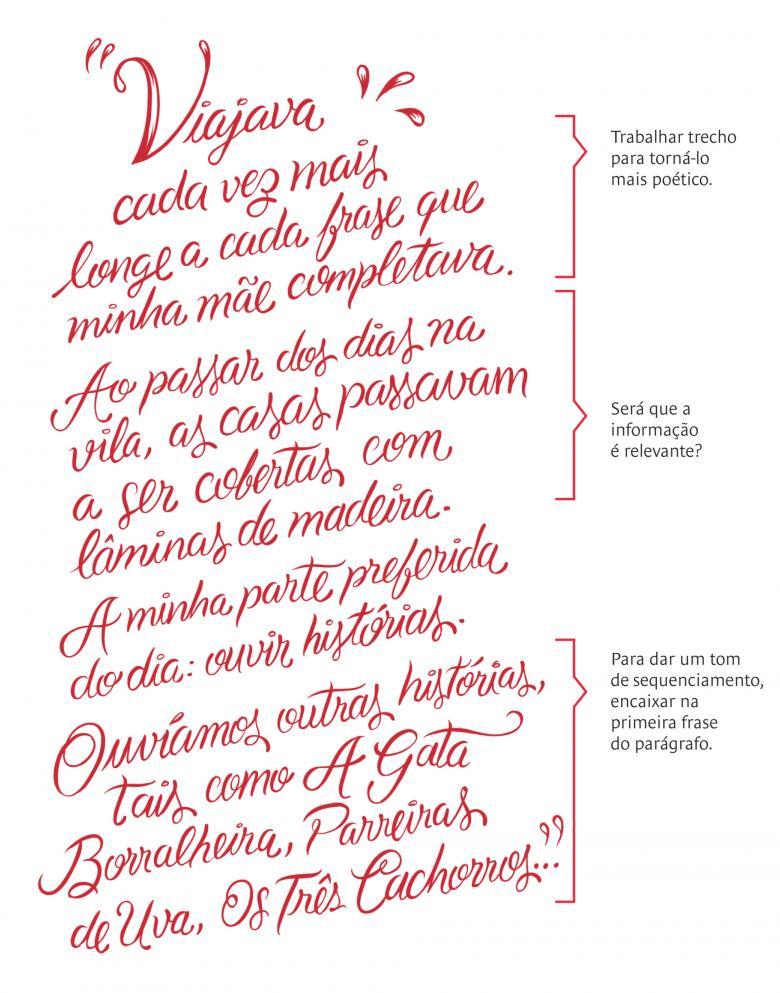 "Viajava
cada vez mais
longe a cada frase que
minha mãe completava.
Ao passar dos dias na
vila, as casas passavam
a ser cobertas com
lâminas de madeira.
A minha parte preferida
do dia: ouvir histórias.
Ouvíamos outras histórias,
tais como A Gata
Borralheira, Parreiras
de Uva, Os Três Cachorros..."
Trabalhar trecho
para torná-lo
mais poético.
Será que a
informação
é relevante?
Para dar um tom
de sequenciamento,
encaixar na
primeira frase
do parágrafo.